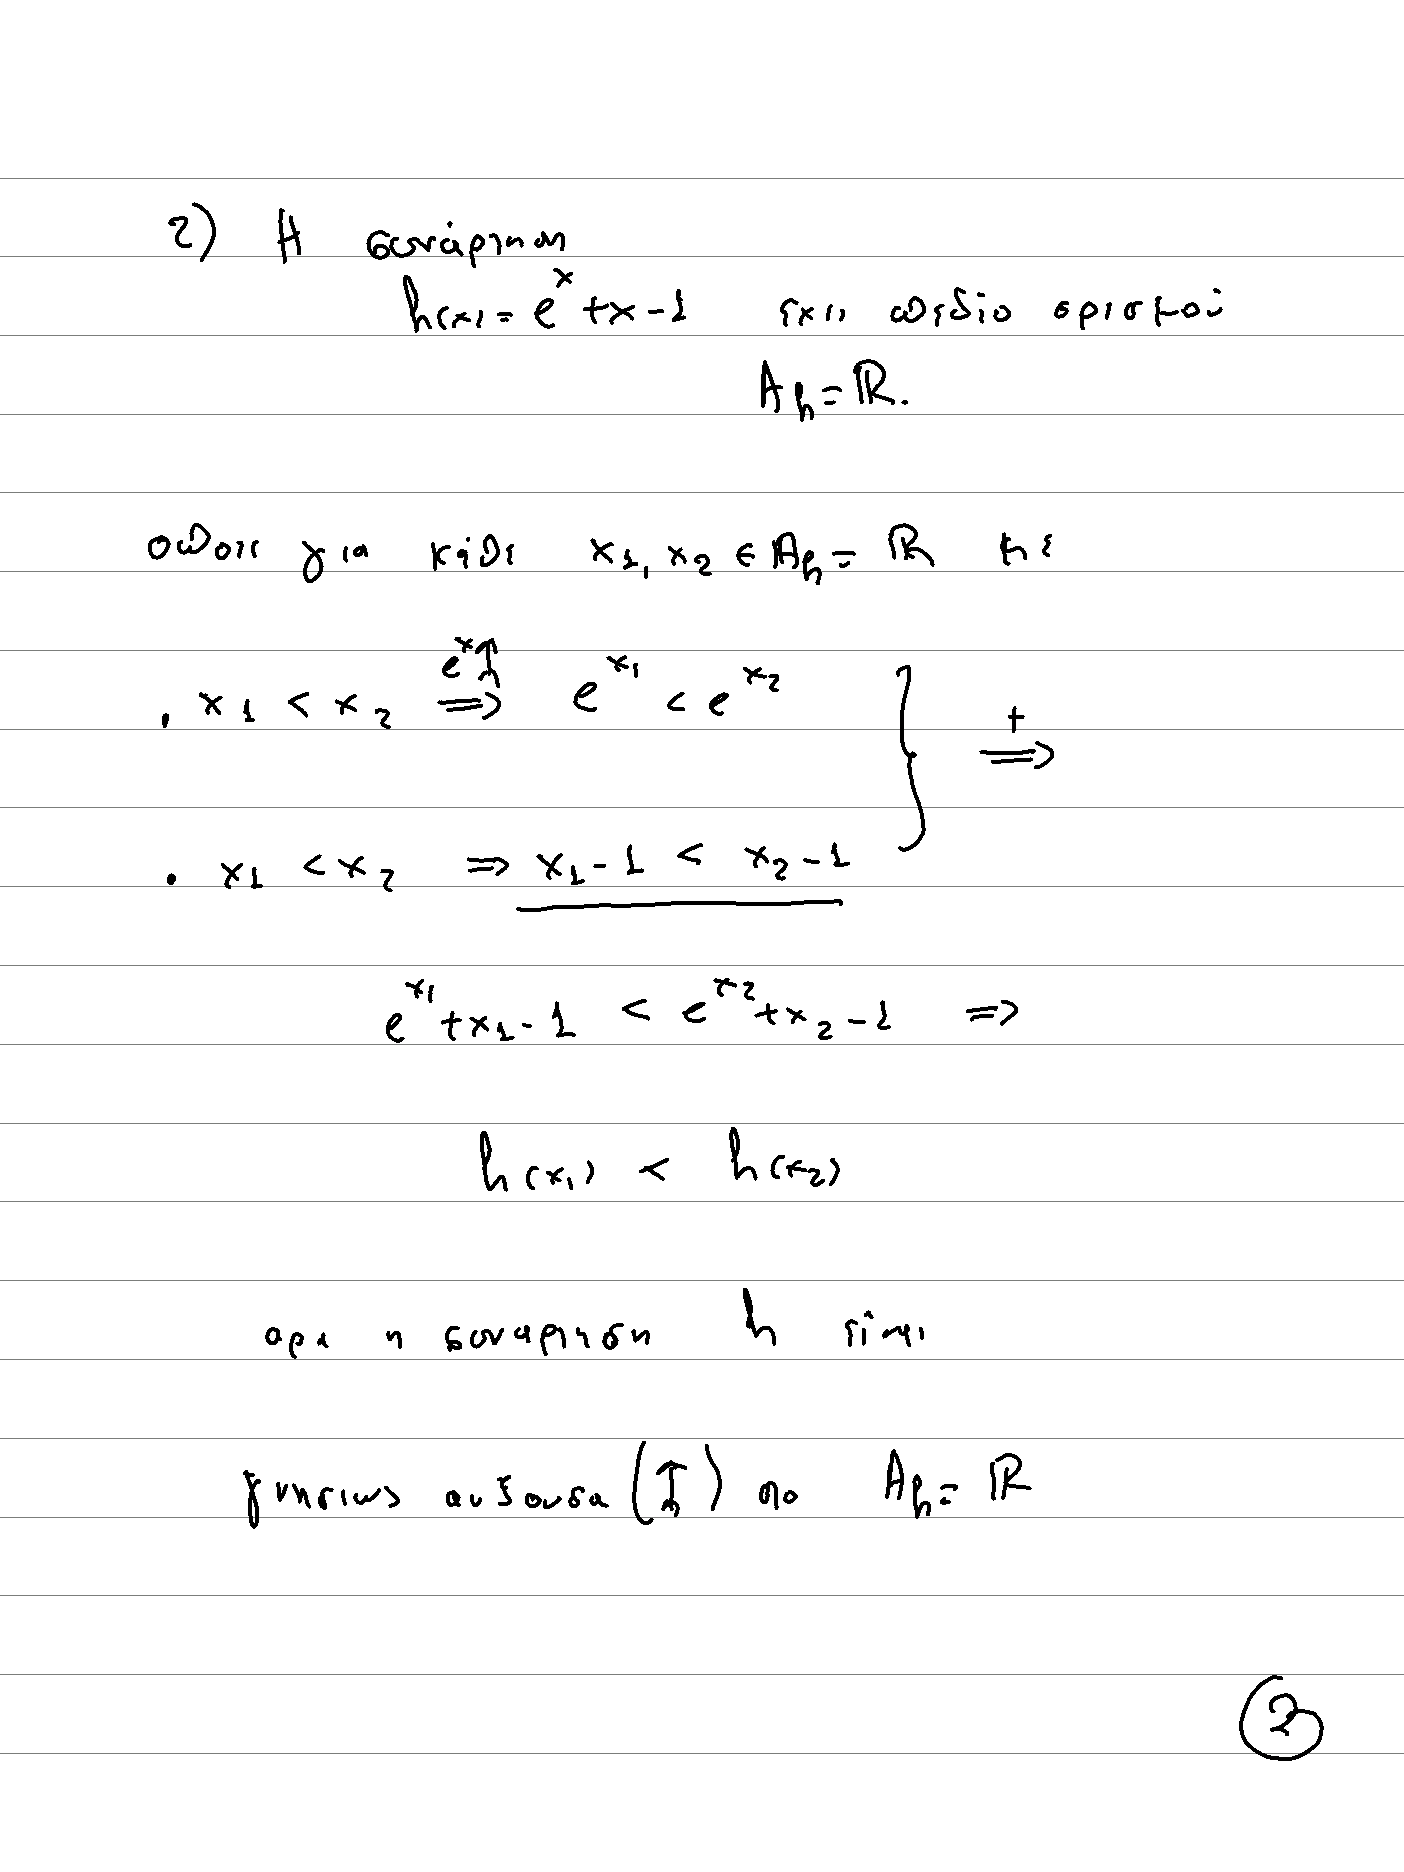 2) Η συνάρτηση
h(x) = e^x + x - 1 έχει πεδίο ορισμού
A_h = ℝ.
οπότε για κάθε x_1, x_2 ∈ A_h = ℝ με
• x_1 < x_2 ⟹ (e^x ↑) e^{x_1} < e^{x_2}
} ⟹ (+)
• x_1 < x_2 ⟹ x_1 - 1 < x_2 - 1
e^{x_1} + x_1 - 1 < e^{x_2} + x_2 - 1 ⟹
h(x_1) < h(x_2)
αρα η συναρτηση h είναι
γνησιως αυξουσα (↑) στο A_h = ℝ
2